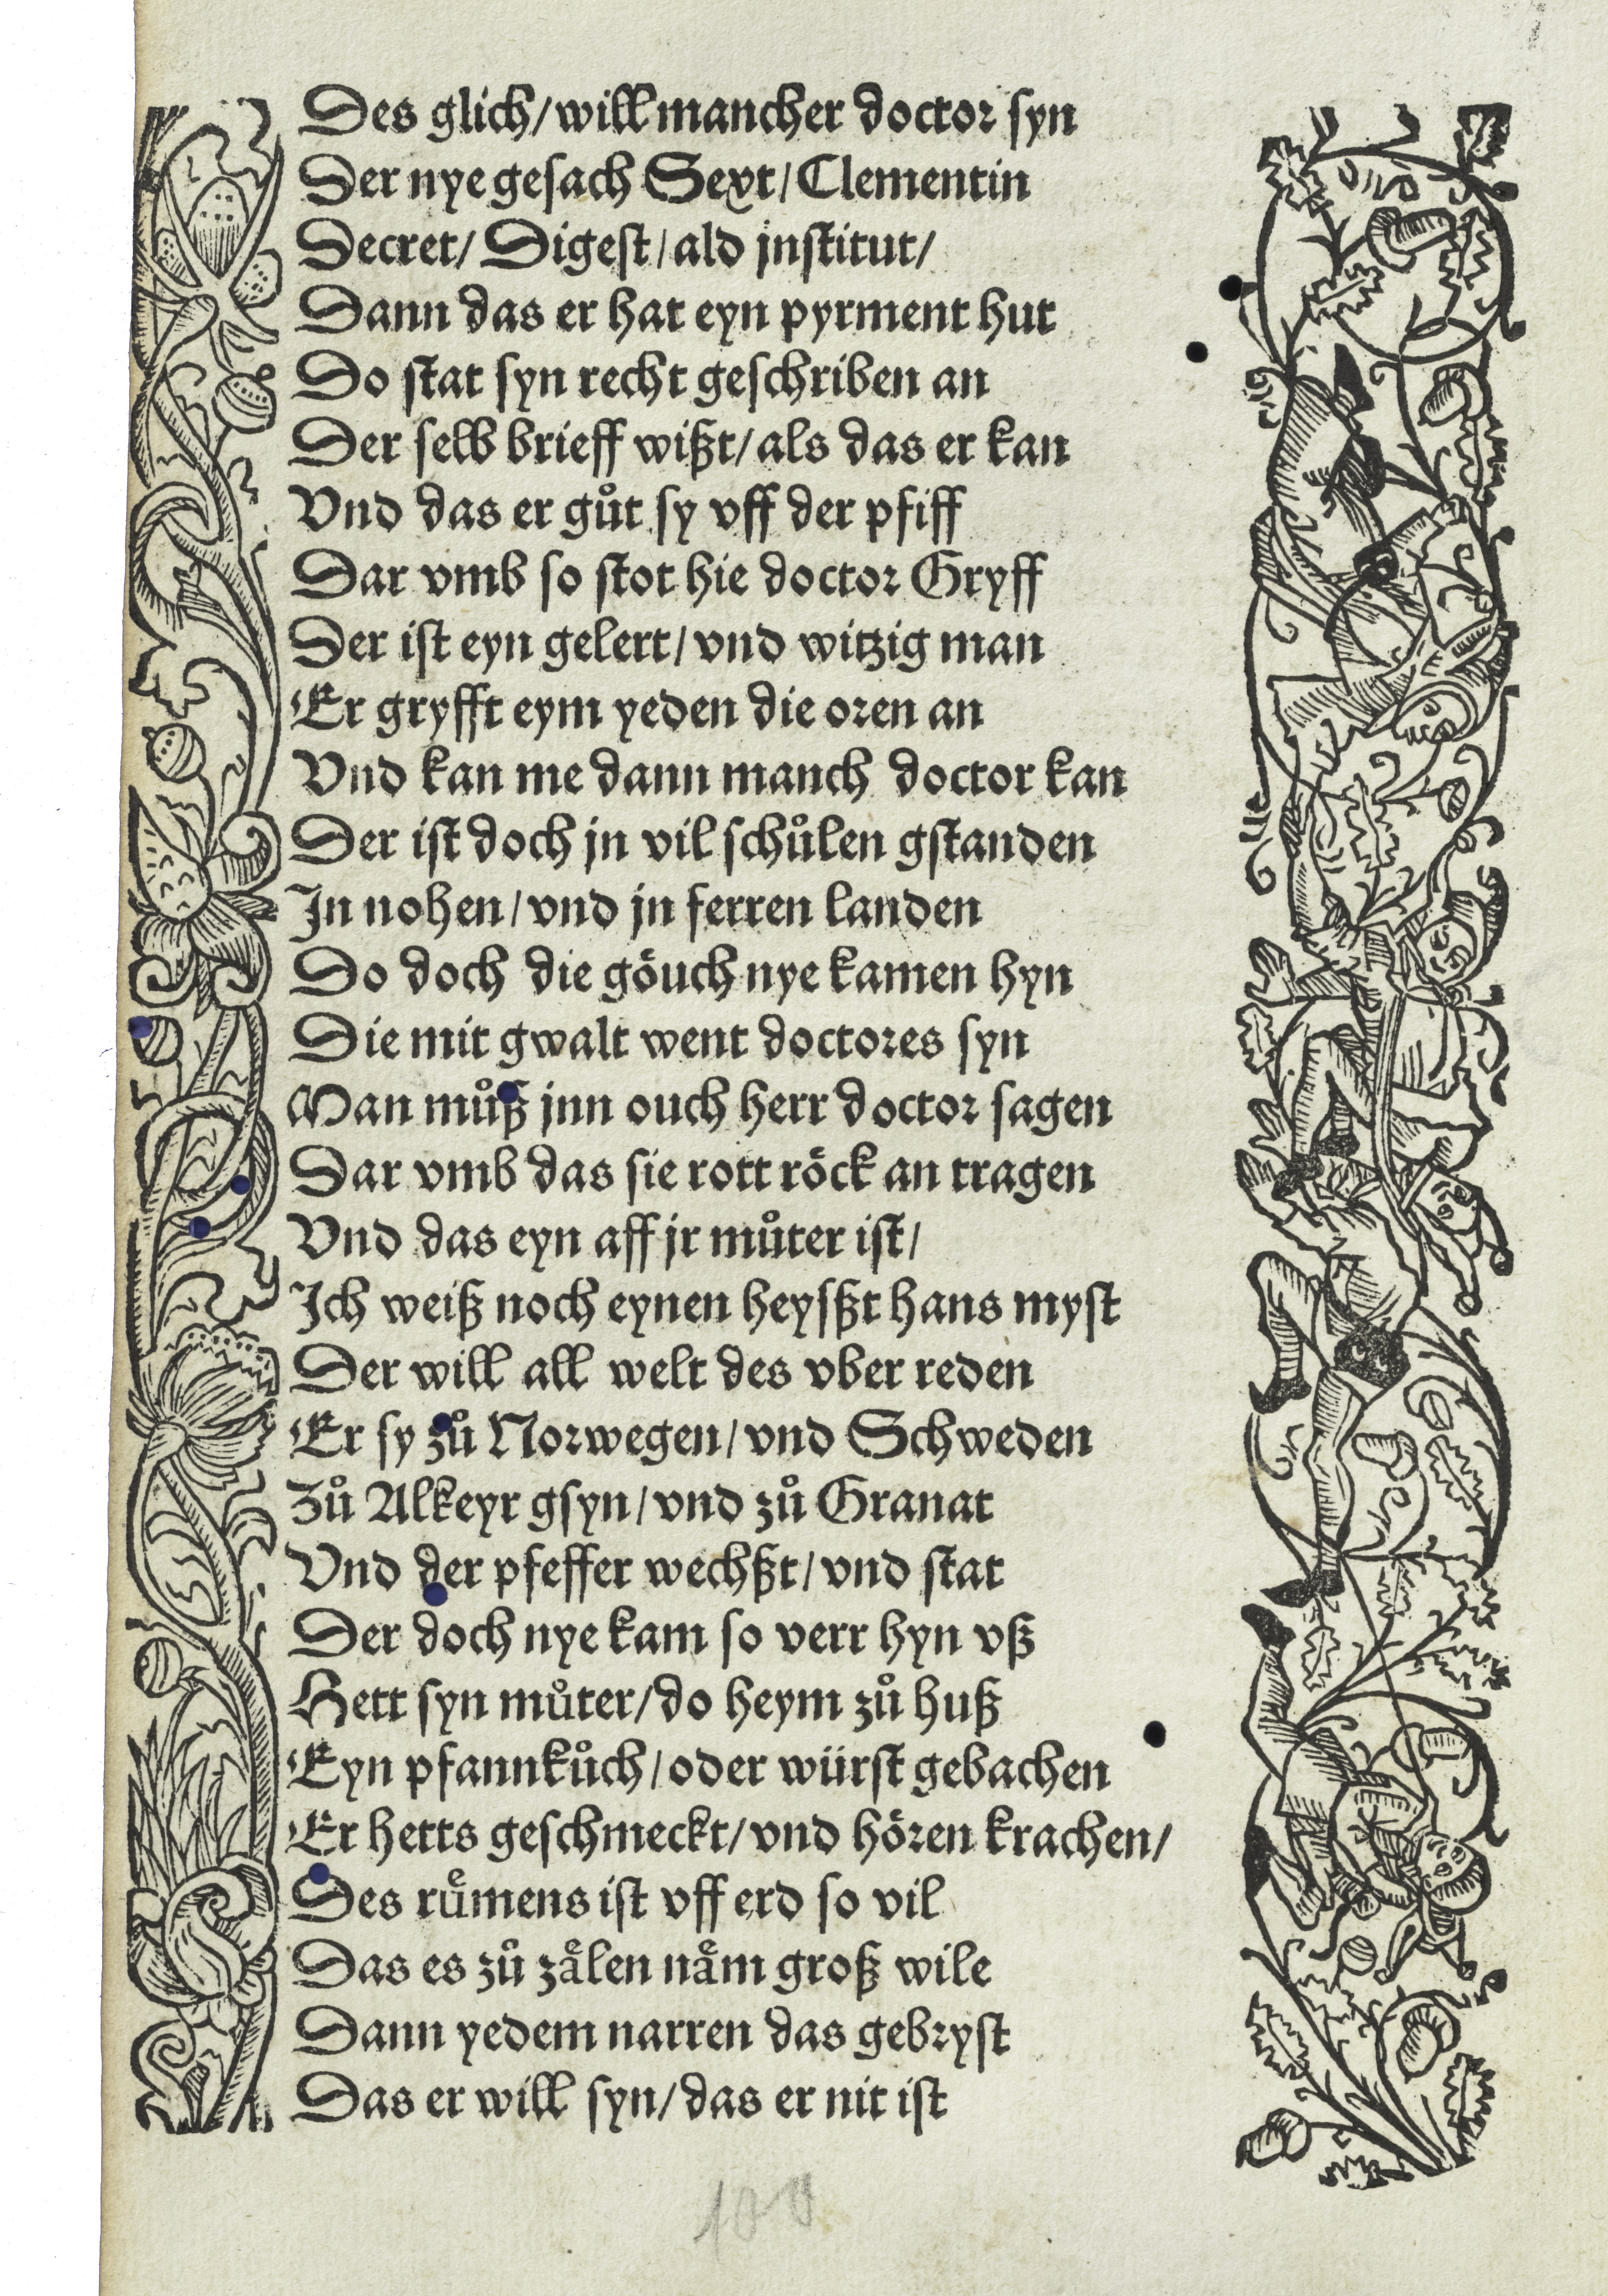 Des glich/ will mancher doctor syn
Der nye gesach Sext/ Clementin
Decret/ Digest/ ald jnstitut/
Dann das er hat eyn pyrment hut
Do stat syn recht geschriben an
Der selb brieff wißt/ als das er kan
Vnd das er gůt sy vff der pfiff
Dar vmb so stot hie doctor Gryff
Der ist eyn gelert/ vnd witzig man
Er gryfft eym yeden die oren an
Vnd kan me dann manch doctor kan
Der ist doch jn vil schůlen gstanden
In nohen/ vnd jn ferren landen
Do doch die göuch nye kamen hyn
Die mit gwalt went doctores syn
Man můß jnn ouch herr doctor sagen
Dar vmb das sie rott röck an tragen
Vnd das eyn aff jr můter ist/
Ich weiß noch eynen heysßt hans myst
Der will all welt des vber reden
Er sy zů Norwegen/ vnd Schweden
Zů Alkeyr gsyn/ vnd zů Granat
Vnd der pfeffer wechßt/ vnd stat
Der doch nye kam so verr hyn vß
Hett syn můter/ do heym zů huß
Eyn pfannkůch/ oder würst gebachen
Er hetts geschmeckt/ vnd hören krachen/
Des ruͤmens ist vff erd so vil
Das es zů zaͤlen naͤm groß wile
Dann yedem narren das gebryst
Das er will syn/ das er nit ist
100